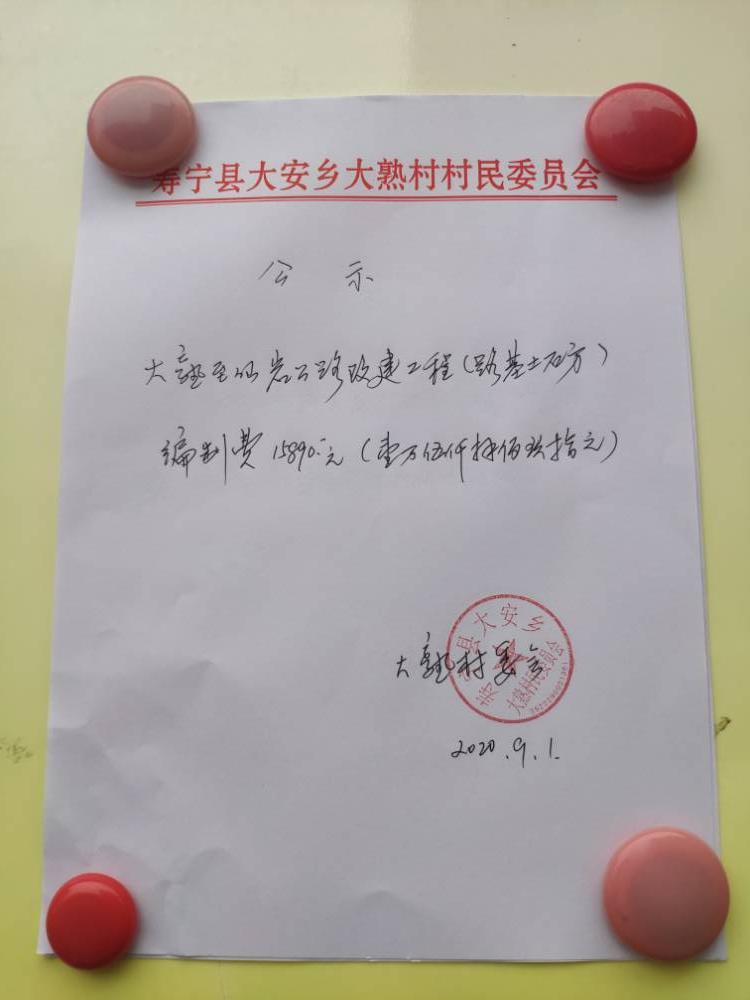 寿宁县大安乡大熟村村民委员会
公 示
大熟至仙岩公路改建工程(路基土石方)
编制费15890.-元(壹万伍仟捌佰玖拾元)
寿宁县大安乡
大熟村民委员会
大熟村委会
2020.9.1.